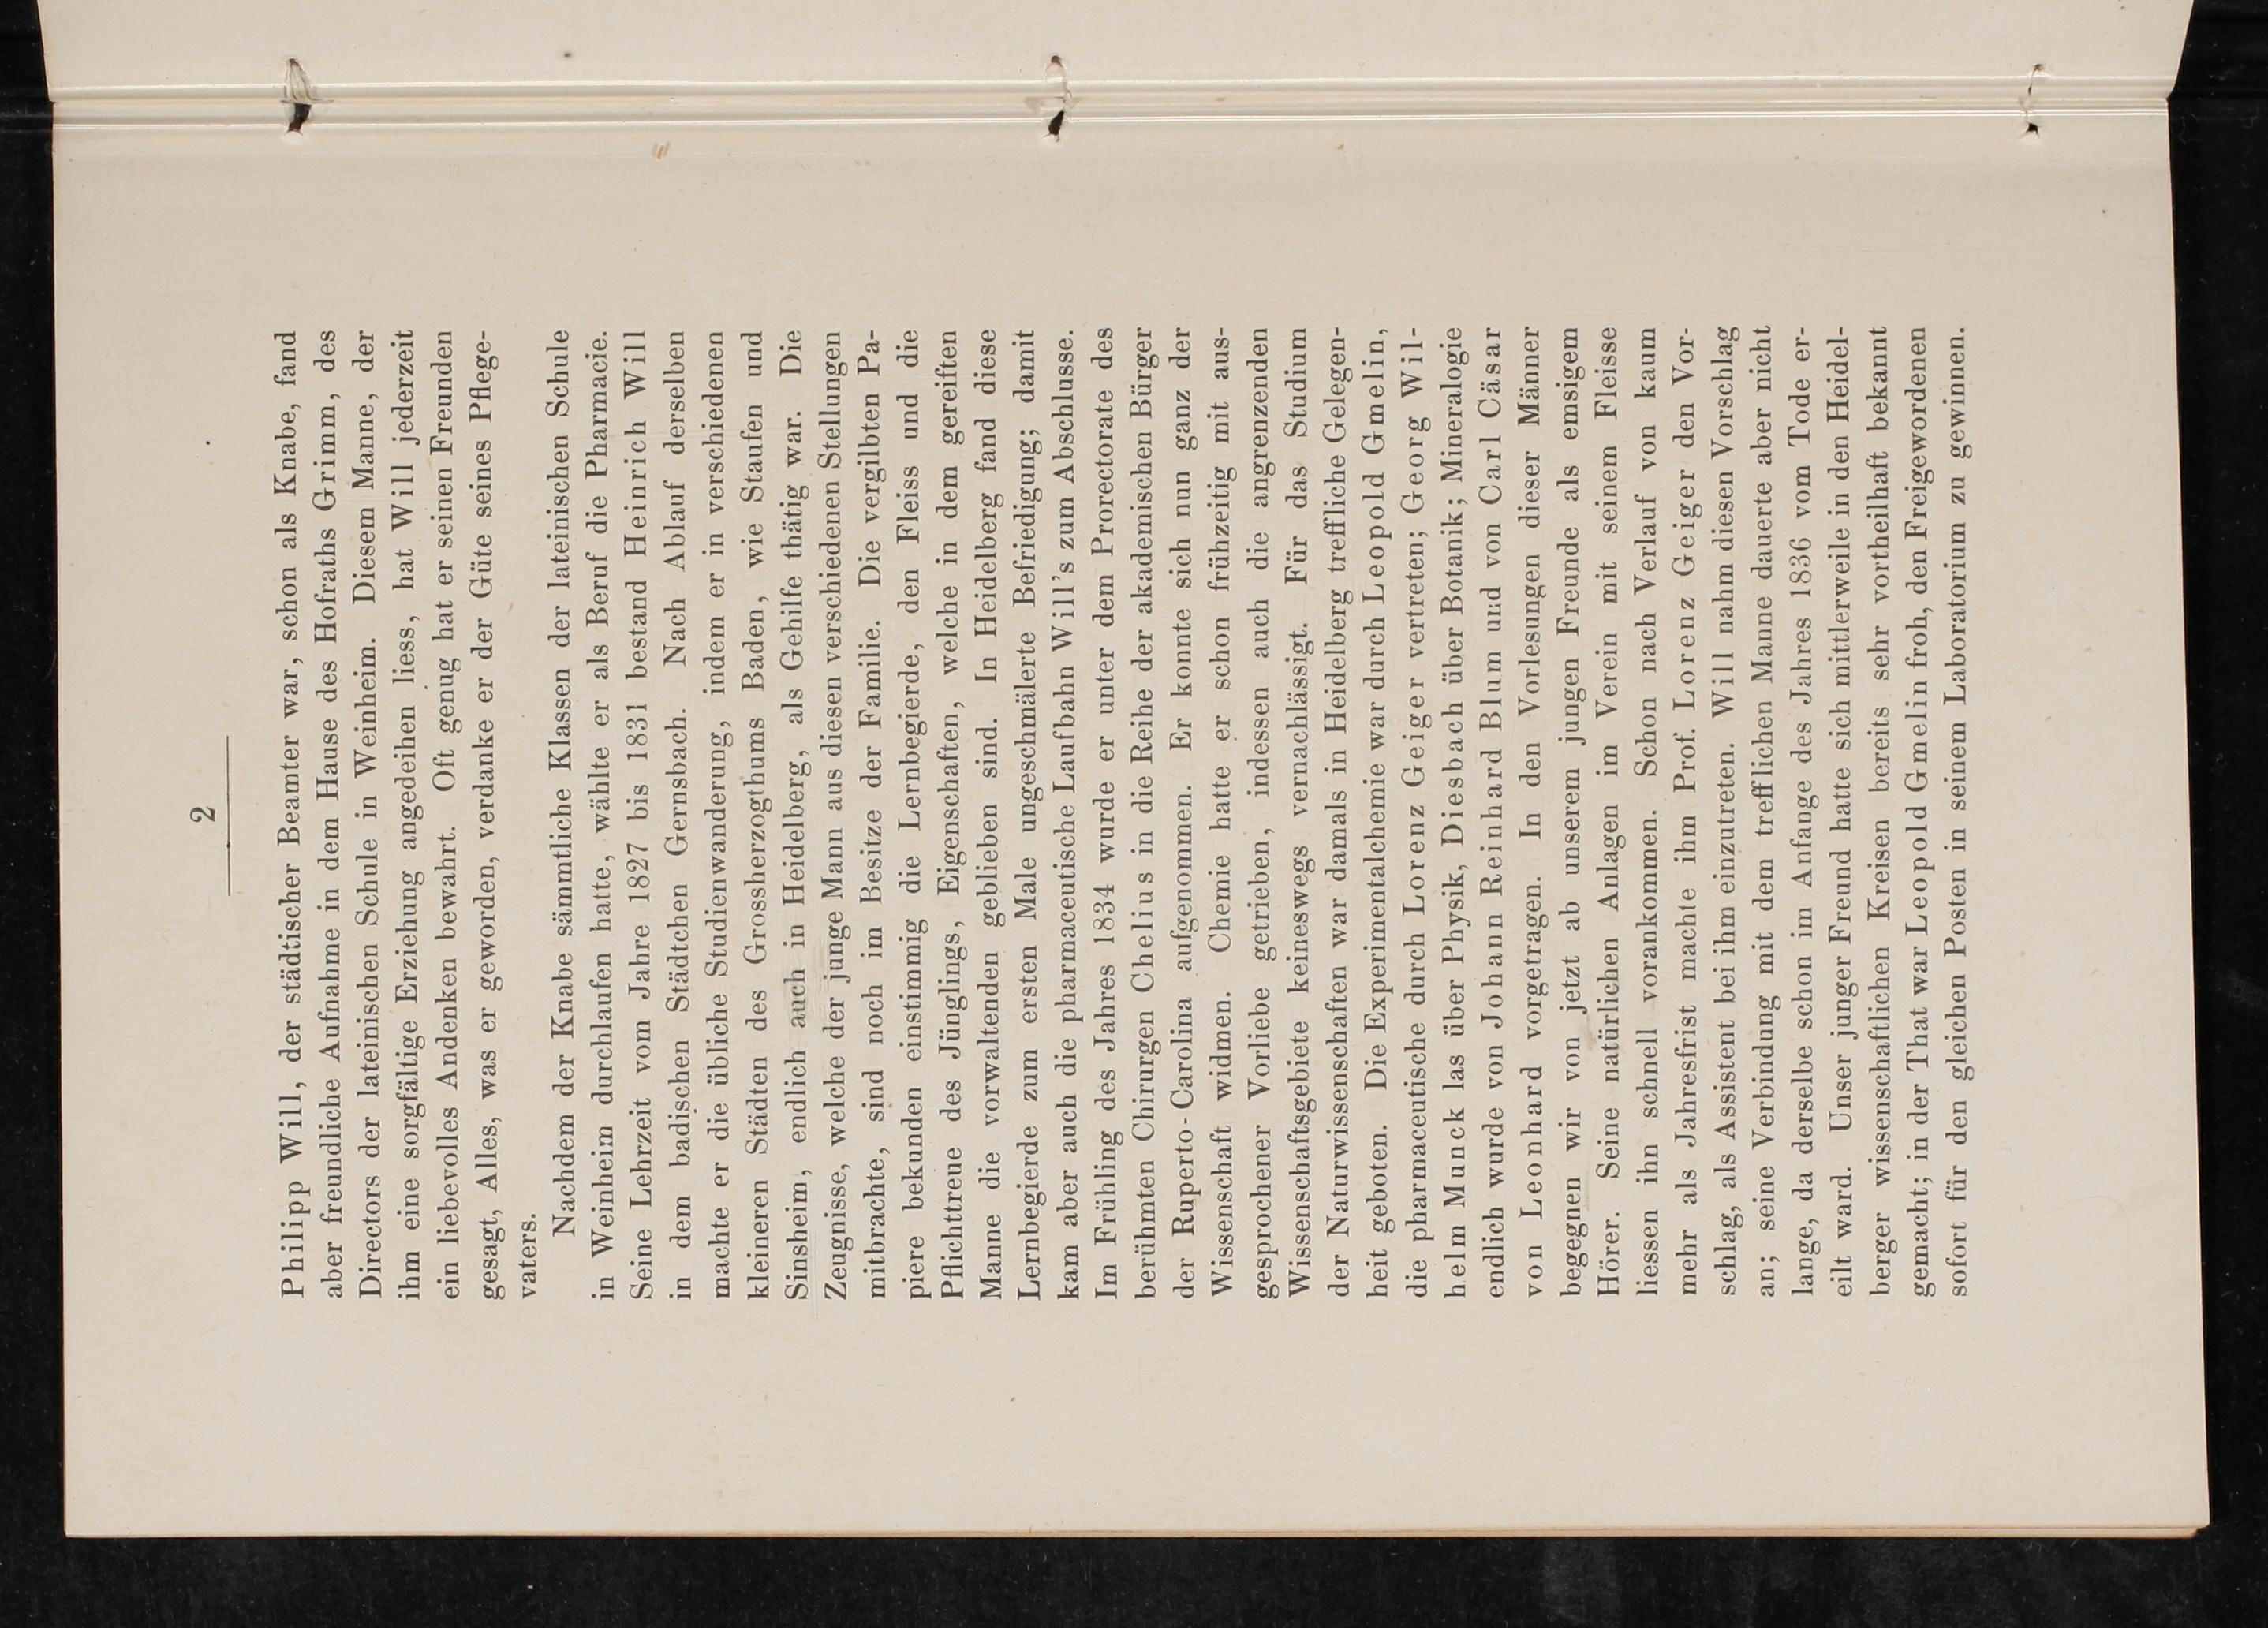 2
Philipp Will, der städtischer Beamter war, schon als Knabe, fand
aber freundliche Aufnahme in dem Hause des Hofraths Grimm, des
Directors der lateinischen Schule in Weinheim. Diesem Manne, der
ihm eine sorgfältige Erziehung angedeihen liess, hat Will jederzeit
ein liebevolles Andenken bewahrt. Oft genug hat er seinen Freunden
gesagt, Alles, was er geworden, verdanke er der Güte seines Pflege-
vaters.
Nachdem der Knabe sämmtliche Klassen der lateinischen Schule
in Weinheim durchlaufen hatte, wählte er als Beruf die Pharmacie.
Seine Lehrzeit vom Jahre 1827 bis 1831 bestand Heinrich Will
in dem badischen Städtchen Gernsbach. Nach Ablauf derselben
machte er die übliche Studienwanderung, indem er in verschiedenen
kleineren Städten des Grossherzogthums Baden, wie Staufen und
Sinsheim, endlich auch in Heidelberg, als Gehilfe thätig war. Die
Zeugnisse, welche der junge Mann aus diesen verschiedenen Stellungen
mitbrachte, sind noch im Besitze der Familie. Die vergilbten Pa-
piere bekunden einstimmig die Lernbegierde, den Fleiss und die
Pflichttreue des Jünglings, Eigenschaften, welche in dem gereiften
Manne die vorwaltenden geblieben sind. In Heidelberg fand diese
Lernbegierde zum ersten Male ungeschmälerte Befriedigung; damit
kam aber auch die pharmaceutische Laufbahn Will's zum Abschlusse.
Im Frühling des Jahres 1834 wurde er unter dem Prorectorate des
berühmten Chirurgen Chelius in die Reihe der akademischen Bürger
der Ruperto-Carolina aufgenommen. Er konnte sich nun ganz der
Wissenschaft widmen. Chemie hatte er schon frühzeitig mit aus-
gesprochener Vorliebe getrieben, indessen auch die angrenzenden
Wissenschaftsgebiete keineswegs vernachlässigt. Für das Studium
der Naturwissenschaften war damals in Heidelberg treffliche Gelegen-
heit geboten. Die Experimentalchemie war durch Leopold Gmelin,
die pharmaceutische durch Lorenz Geiger vertreten; Georg Wil-
helm Munck las über Physik, Diesbach über Botanik; Mineralogie
endlich wurde von Johann Reinhard Blum und von Carl Cäsar
von Leonhard vorgetragen. In den Vorlesungen dieser Männer
begegnen wir von jetzt ab unserem jungen Freunde als emsigem
Hörer. Seine natürlichen Anlagen im Verein mit seinem Fleisse
liessen ihn schnell vorankommen. Schon nach Verlauf von kaum
mehr als Jahresfrist machte ihm Prof. Lorenz Geiger den Vor-
schlag, als Assistent bei ihm einzutreten. Will nahm diesen Vorschlag
an; seine Verbindung mit dem trefflichen Manne dauerte aber nicht
lange, da derselbe schon im Anfange des Jahres 1836 vom Tode er-
eilt ward. Unser junger Freund hatte sich mittlerweile in den Heidel-
berger wissenschaftlichen Kreisen bereits sehr vortheilhaft bekannt
gemacht; in der That war Leopold Gmelin froh, den Freigewordenen
sofort für den gleichen Posten in seinem Laboratorium zu gewinnen.